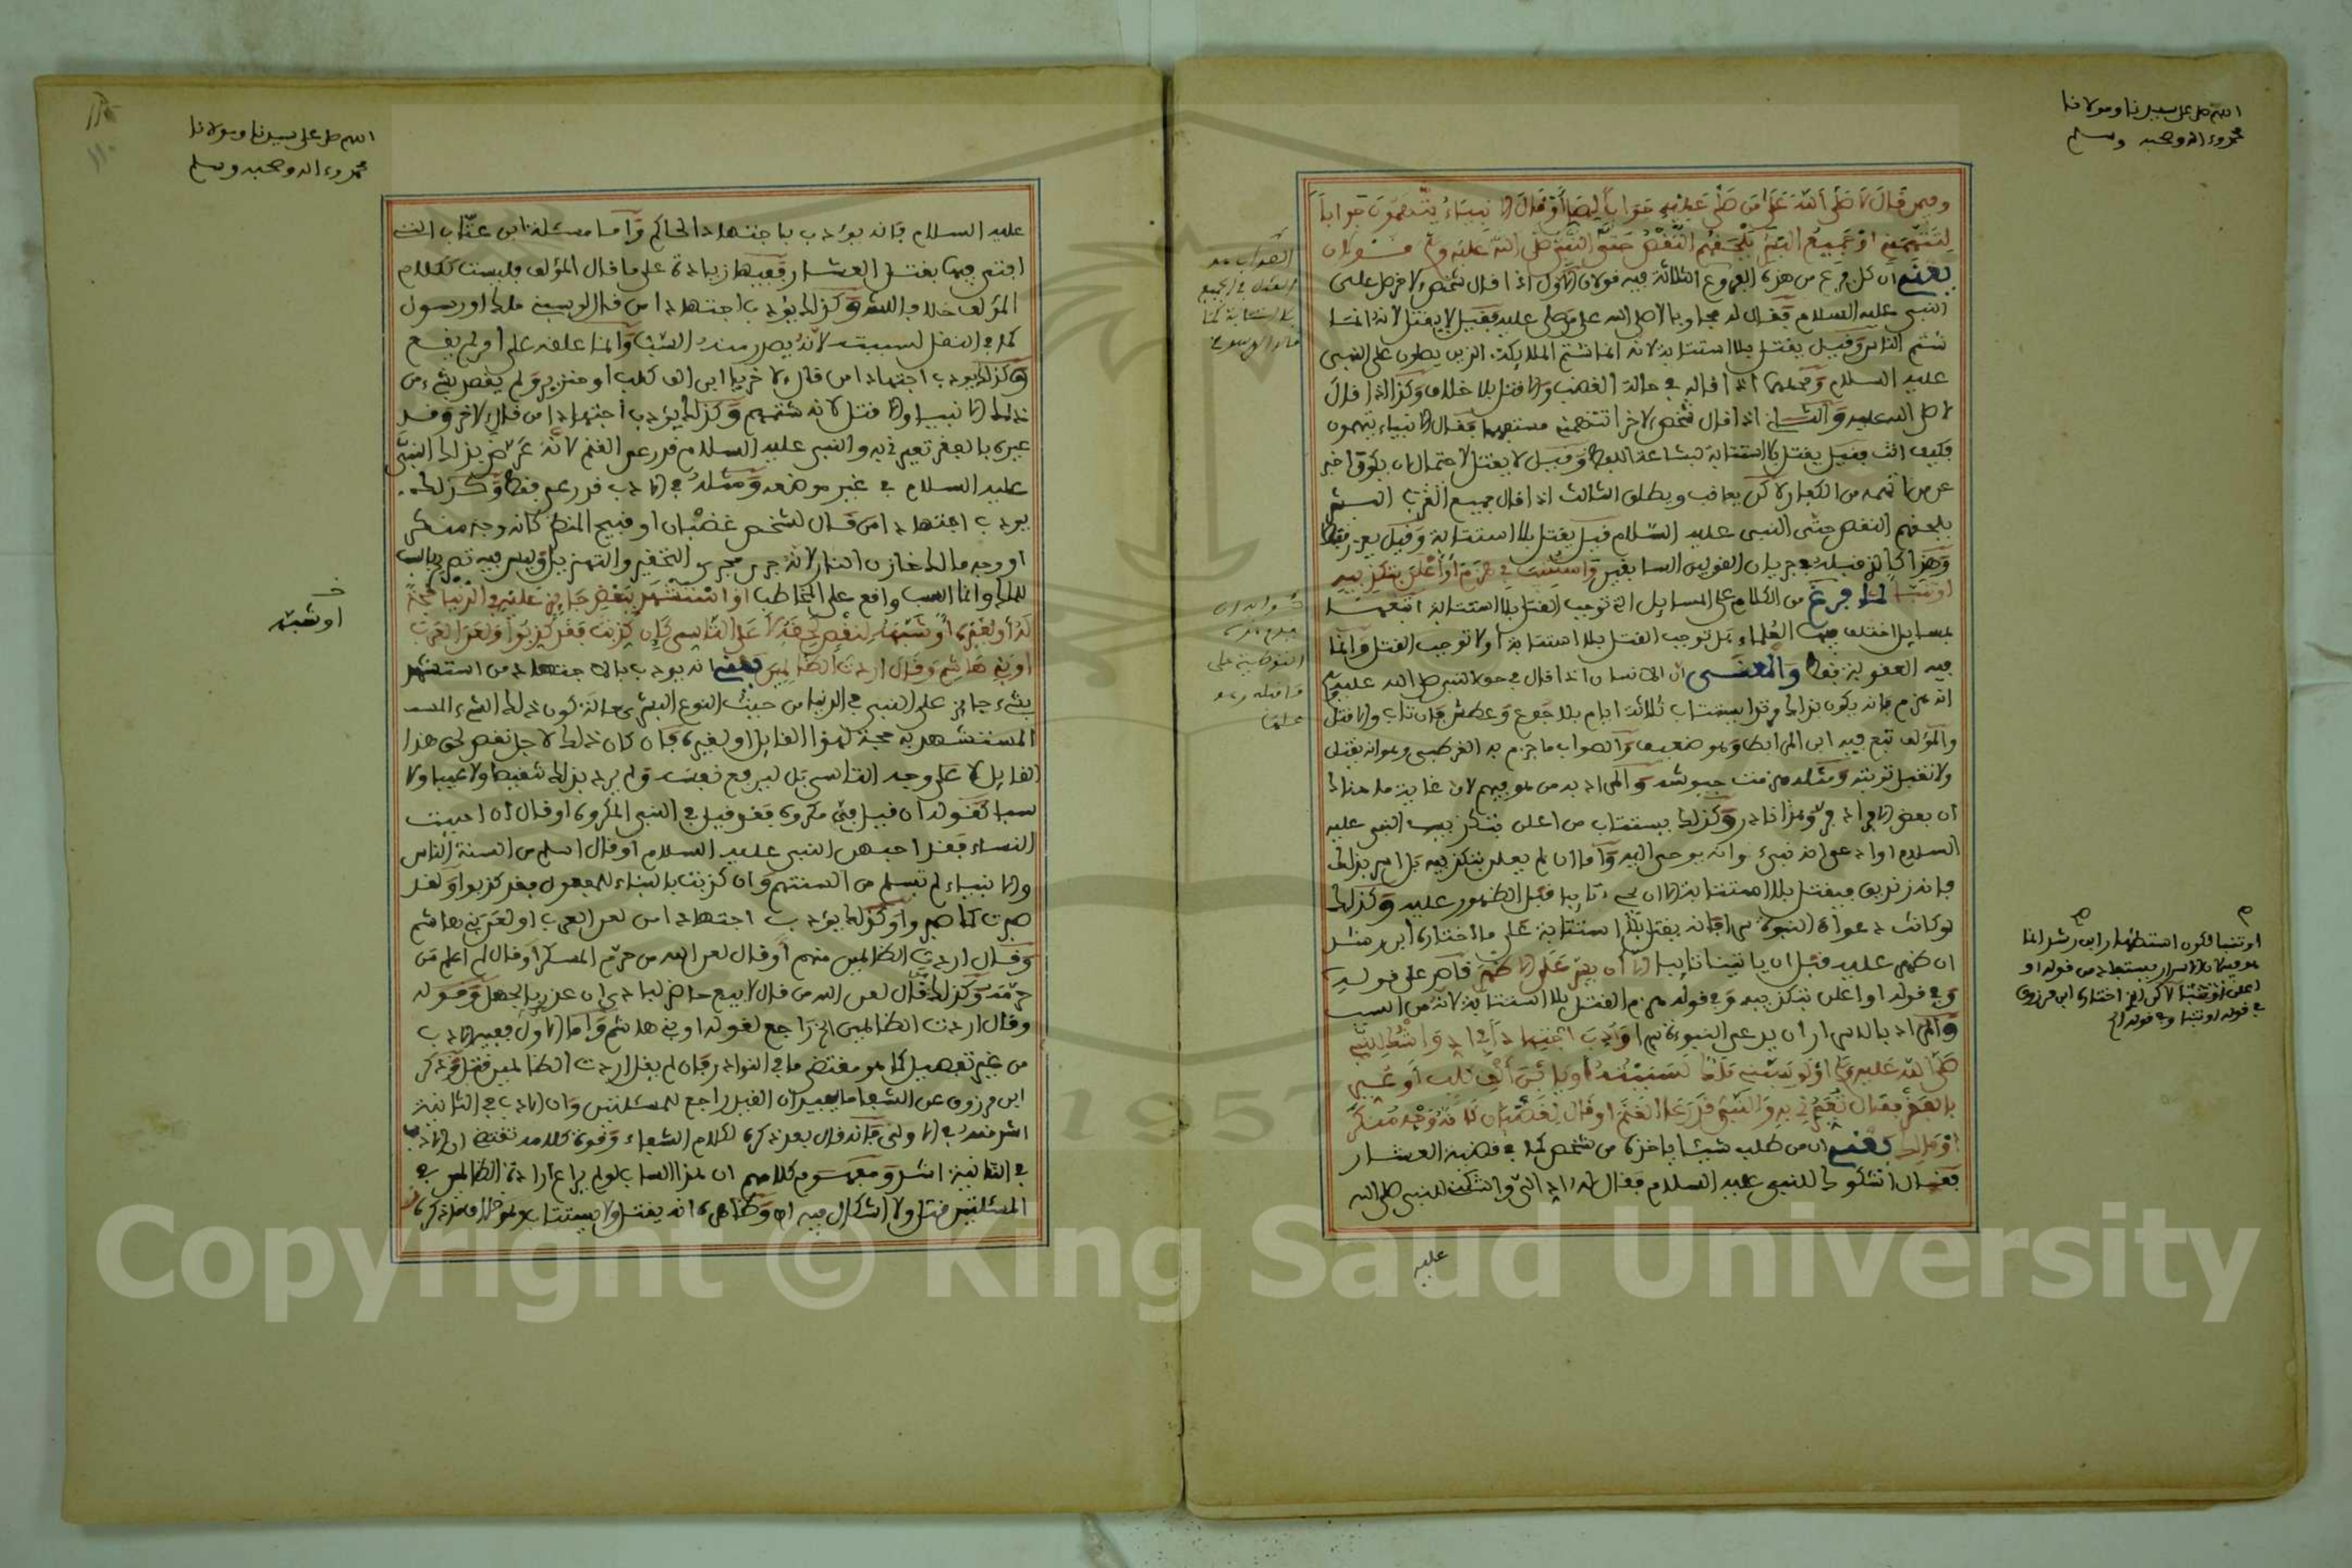 اللهم صل على سيدنا ومولانا
محمد وءاله وصحبه وسلم
وفيمن قال لا صلى الله على من صلى عليه جوابا لصل أو قال الانبياء يتهمون جوابا
لتتهمني او جميع البشر يلحقهم النقص حتى النبي صلى الله عليه وسلم قولان
يعني ان كل فرع من هذه الفروع الثلاثة فيه قولان الاول اذا قال شخص لاخر صل على
النبي عليه السلام فقال له مجاوبا لا صلى الله على من صلى عليه فقيل لا يقتل لانه انما
شتم الناس وقيل يقتل بلا استتابة لانه انما شتم الملايكة الذين يصلون على النبي
عليه السلام ومحلهما اذا قاله في حالة الغضب والا قتل بلا خلاف وكذا اذا قال
لا صلى الله عليه والثاني اذا قال شخص لاخر اتتهمني مستفهما فقال الانبياء يتهمون
فكيف انت فقيل يقتل بلا استتابة لبشاعة اللفظ وقيل لا يقتل لاحتمال ان يكون اخبر
عن من اتهمه من الكفار لاكن يعاقب ويطلق الثالث اذا قال جميع البشر
يلحقهم النقص حتى النبي عليه السلام قيل يقتل بلا استتابة وقيل يعزر فقط
وهذا كالذي قبله في جريان القولين السابقين واستتيب في هزم أو أعلن بتكذيبه
او تنبأ لما فرغ من الكلام على المسايل التي توجب القتل بلا استتابة اتبعها
بمسايل اختلف فيها العلماء هل توجب القتل بلا استتابة أو لا توجب القتل وانما
فيه العقوبة فقط والمعنى ان الانسان اذا قال في حق النبي صلى الله عليه وسلم
انه هزم فانه يكون بذلك مرتدا يستتاب ثلاثة ايام بلا جوع وعطش فان تاب والا قتل
والمؤلف تبع فيه ابن المرابط وهو ضعيف والصواب ما جزم به القرطبي وهو انه يقتل
ولا تقبل توبته ومثله هزمت جيوشه والمراد به من هو فيهم لان غاية ما هناك
ان بعض الافراد فر وهذا نادر وكذلك يستتاب من اعلن بتكذيب النبي عليه
السلام او ادعى انه نبيء وانه يوحى اليه واما ان لم يعلن بتكذيبه بل اسر بذلك
فانه زنديق فيقتل بلا استتابة الا ان يجيء تايبا قبل الظهور عليه وكذلك
لو كانت دعواه النبوة سرا فانه يقتل بلا استتابة على ما اختاره ابن رشد
ان ظهر عليه قبل ان ياتينا تايبا الا أن يسر على الاظهر قاصر على قوليه
وفي قوله او اعلن بتكذيبه وفي قوله هزم القتل بلا استتابة لانه من السب
والمراد بالاسرار أن يدعي النبوة سرا وأدب اجتهادا في أد واشك للنبي
صلى الله عليه وسلم أو لو سبني ملك لسببته أو يا ابن ألف كلب أو عير
بالفقر فقال تعيرني به والنبي قد رعى الغنم أو قال لغضبان كأنه وجه منكر
أو ملك يعني ان من طلب شيئا ياخذه من شخص كما في قضية العشار
فقال اشكوك للنبي عليه السلام فقال له اد إلي واشك للنبي صلى الله
عليه
او تنبأ فكون استظهار ابن رشد انما
هو فيه لان الاسرار يستفاد من قوله او
اعلن او تنبأ لاكن الذي اختاره ابن مرزوق
في قوله او تنبأ وفي قوله الخ
اللهم صل على سيدنا ومولانا
محمد وءاله وصحبه وسلم
عليه السلام فانه يؤدب باجتهاد الحاكم وأما مسئلة ابن عتاب التي
افتى فيها بقتل العشار ففيها زيادة على ما قال المؤلف فليست ككلام
المؤلف خلافا وكذلك يؤدب اجتهادا من قال لو سبني ملك او رسول
كما في النقل لسببته لانه يصدر منه السب وانما علقه على أمر لم يقع
وكذلك يؤدب اجتهادا من قال لاخر يا ابن الف كلب او خنزير ولم يقصد بشيء من
ذلك الانبياء والا قتل لانه شتمهم وكذلك يؤدب اجتهادا من قال لاخر وقد
عيره بالفقر تعيرني به والنبي عليه السلام قد رعى الغنم لانه عرض بذكر النبي
عليه السلام في غير موضعه ومثله في الادب قد رعى فقط وكذلك
يؤدب اجتهادا من قال لشخص غضبان او قبيح المنظر كانه وجه منكر
او وجه مالك خازن النار لانه جرى مجرى التحقير والتهزيل وليس فيه تصريح بالسب
للملك وانما السب واقع على المخاطب او استشهد ببعض جايز عليه في الدنيا حجة
له أو لغيره أو شبه لنقص لحقه لا على التأسي كإن كذبت فقد كذبوا أو لعن العرب
أو بني هاشم وقال اردت الظالمين يعني انه يؤدب بالاجتهاد من استشهد
بشيء جايز على النبي في الدنيا من حيث النوع البشري حالة كون ذلك الشيء
المستشهد به حجة لهذا القايل أو لغيره فان كان ذلك لاجل نقص لحق هذا
القايل لا على وجه التاسي بل ليرفع نفسه ولم يرد بذلك تنقيصا ولا عيبا ولا
سبا كقوله ان قيل في مكروه فقد قيل في النبي المكروه او قال ان احببت
النساء فقد احبهن النبي عليه السلام او قال اسلم من السنة الناس
والانبياء لم تسلم من السنتهم وان كذبت بالبناء للمفعول فقد كذبوا او لقد
صبرت كما صبروا وكذلك يؤدب اجتهادا من لعن العرب او لعن بني هاشم
وقال اردت الظالمين منهم أو قال لعن الله من حرم المسكر او قال لم اعلم من
حرمه وكذلك قال لعن الله من قال لا يبيع حاضر لباد ان عذر بالجهل وقوله
وقال اردت الظالمين الخ راجع لقوله او بني هاشم واما الاول ففيه الادب
من غير تفصيل كما هو مقتضى ما في النوادر فان لم يقل اردت الظالمين قتل وذكر
ابن مرزوق عن الشفا ما يفيد ان القيد راجع للمسئلتين وان الادب في الثانية
اشد منه في الاولى فانه قال بعد ذكره لكلام الشفاء وقوة كلامه تقتضي ان الادب
في الثانية اشد ومفهوم كلامهم ان هذا الساب لو لم يدع ارادة الظالمين في
المسئلتين قتل ولا اشكال فيه اه وظاهره انه يقتل ولا يستتاب
او شبه